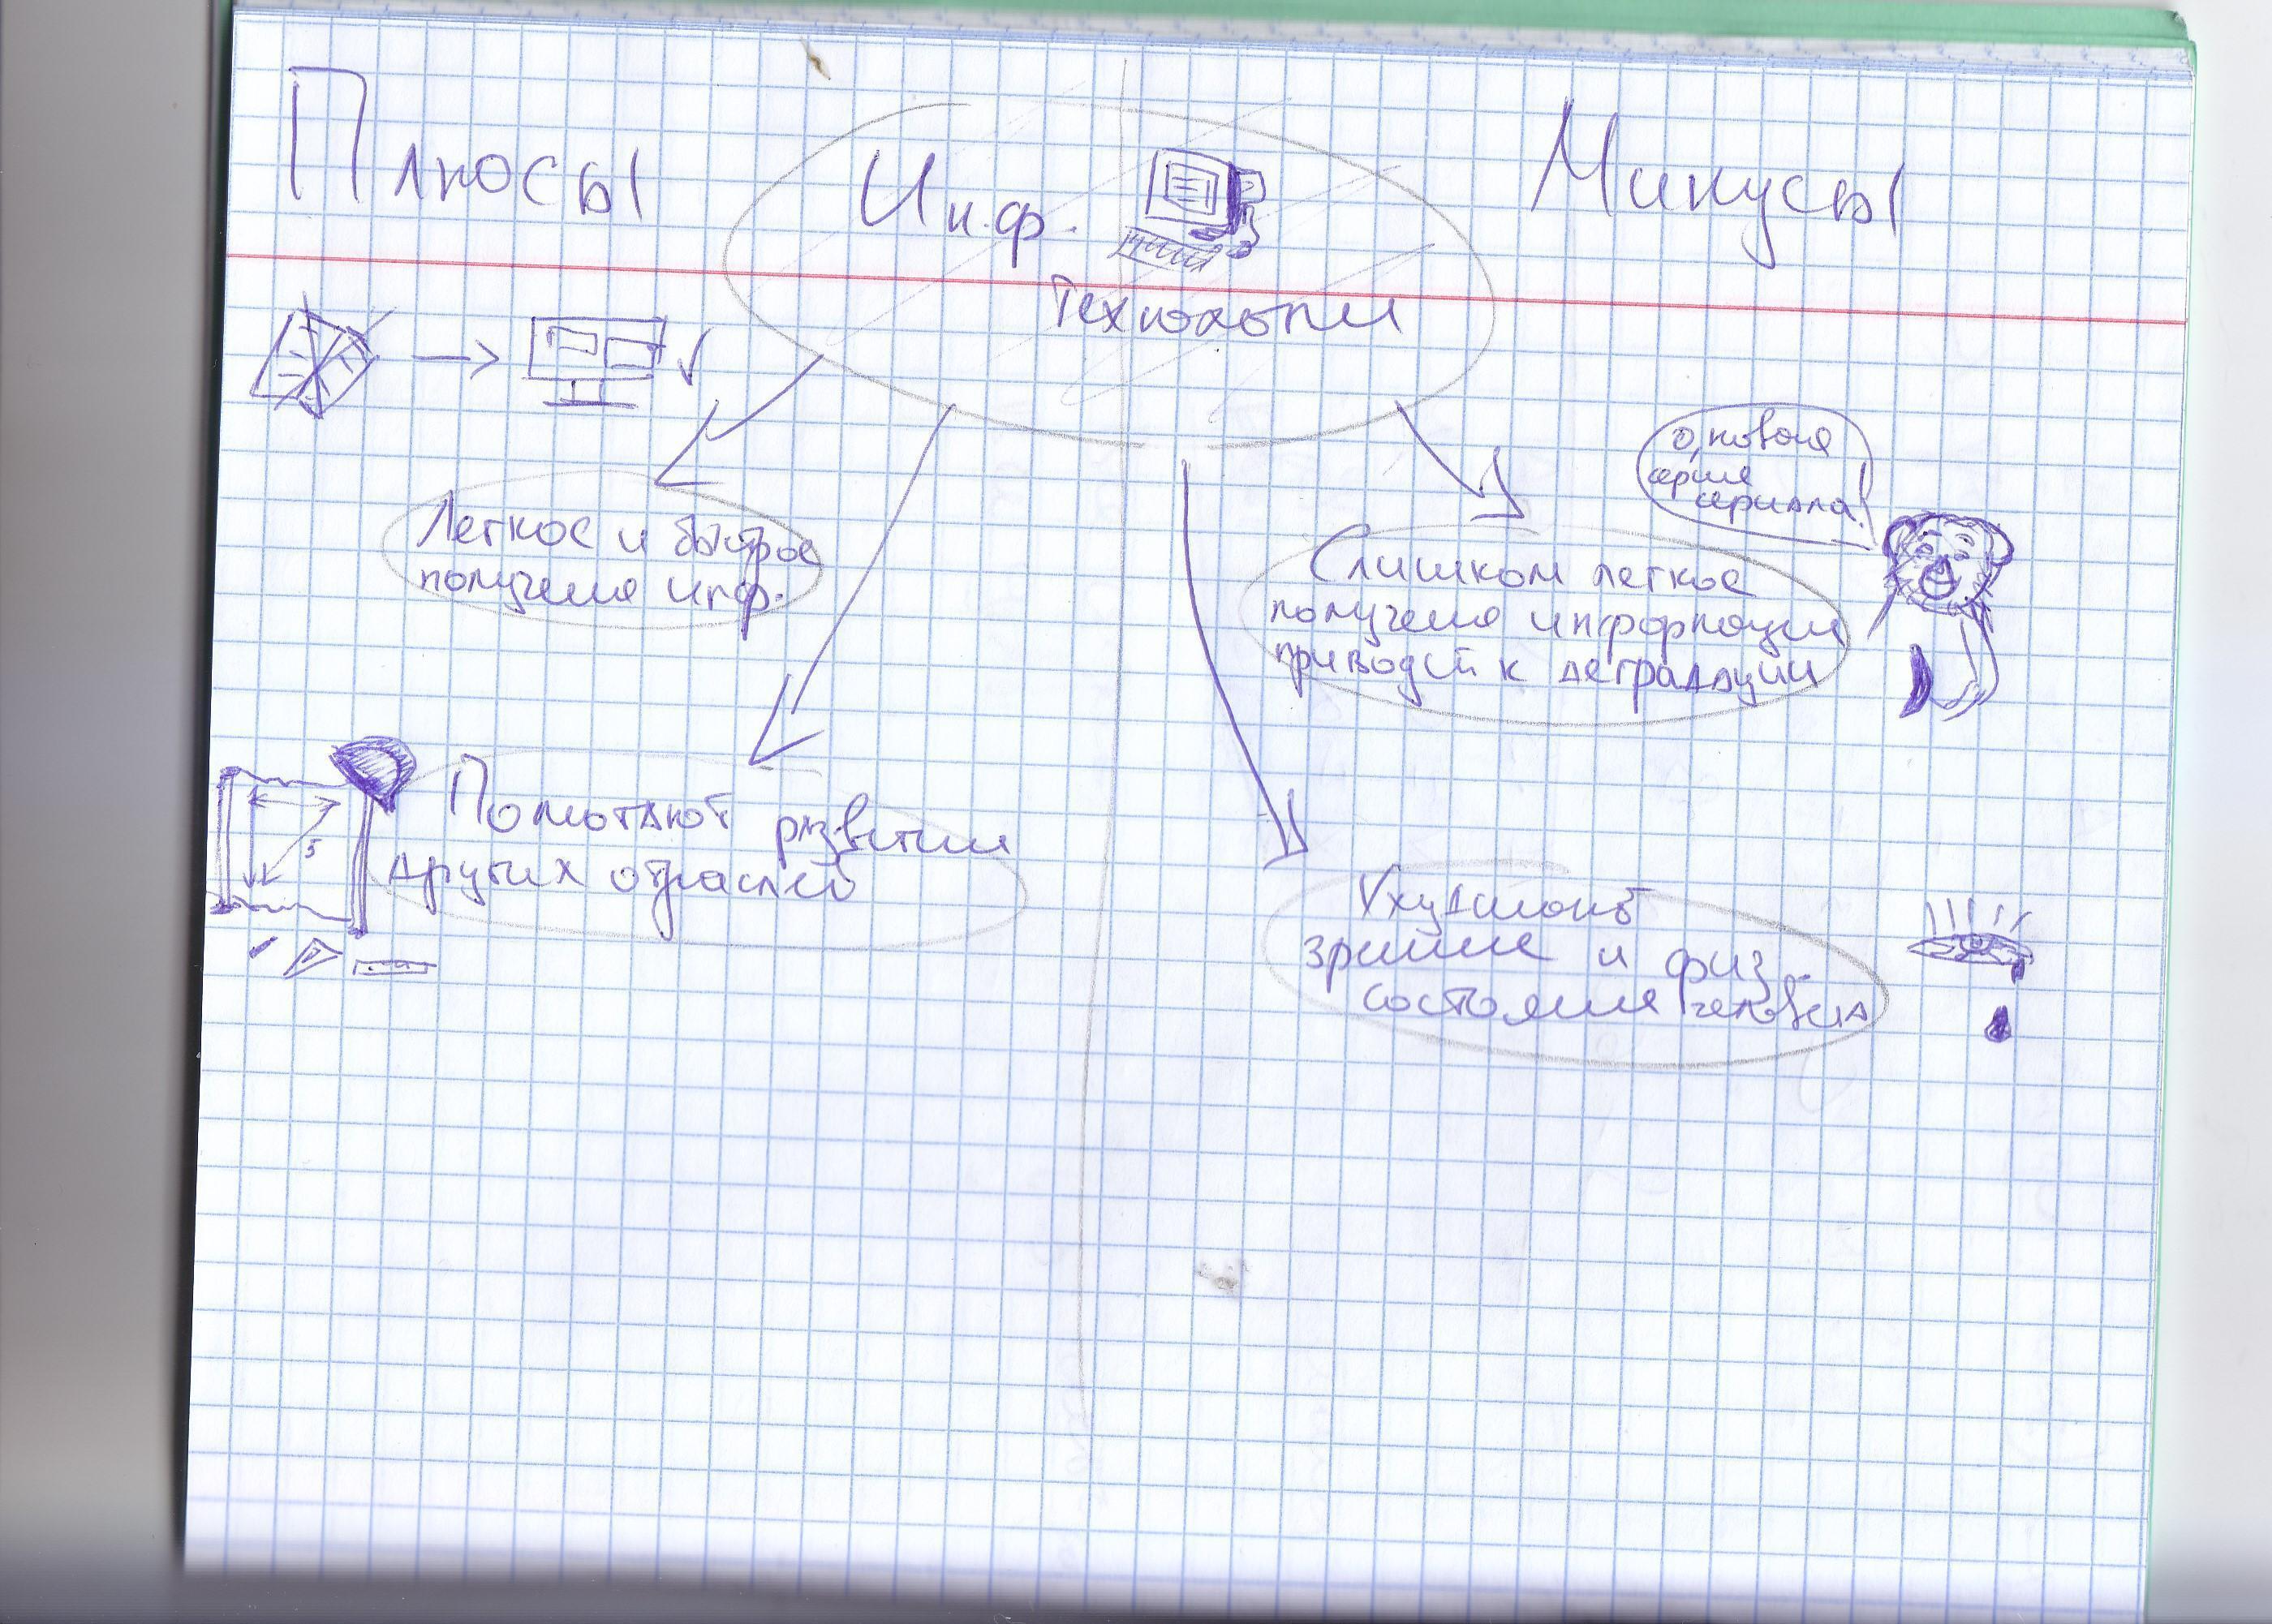 Плюсы
Инф.
Технологии
Минусы
Легкое и быстрое
получение инф.
Помогают развитии
других отраслей
5
О, новая
серия
сериала!
Слишком легкое
получение информации
приводит к деградации
Ухудшают
зрение и физ.
состояния человека